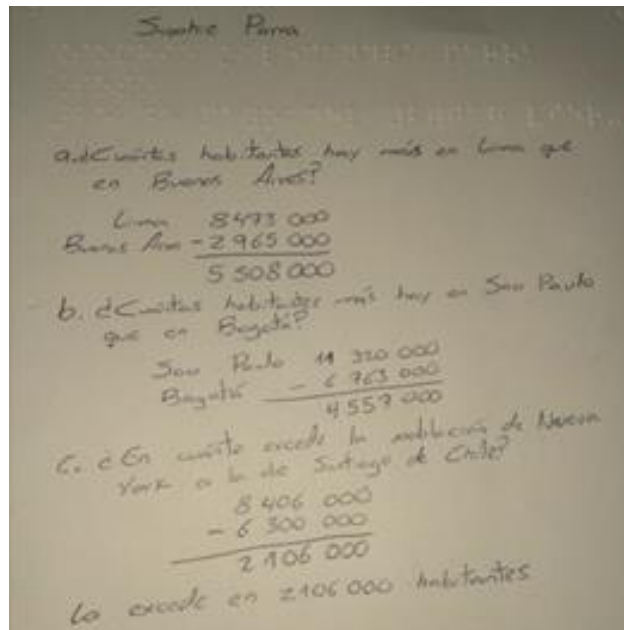 Parra
a. ¿Cuántos habitantes hay más en Lima que
en Buenos Aires?
Lima 8473 000
Buenos Aires - 2 965 000
5 508 000
b. ¿Cuántos habitantes más hay en Sao Paulo
que en Bogotá?
Sao Paulo 11 320 000
Bogotá - 6 763 000
4 557 000
C. ¿En cuánto excede la población de Nueva
York a la de Santiago de Chile?
8 406 000
- 6 300 000
2 106 000
La excede en 2106 000 habitantes